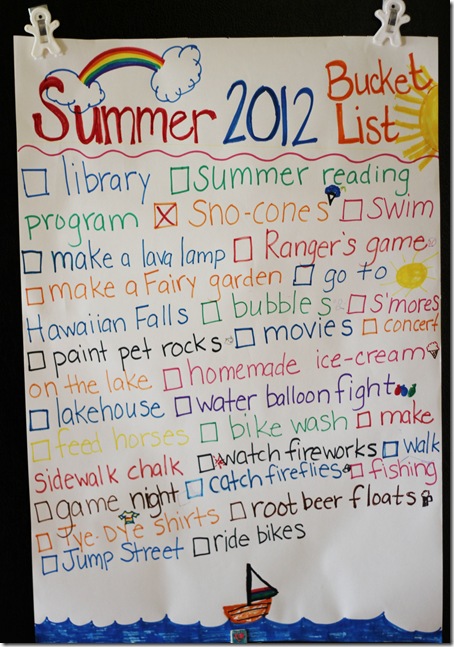 Summer 2012 Bucket List
library summer reading
program Sno-cones Swim
make a lava lamp Ranger's game
make a Fairy garden go to
Hawaiian Falls bubbles S'mores
paint pet rocks movies concert
on the lake homemade ice-cream
lakehouse water balloon fight
feed horses bike wash make
sidewalk chalk watch fireworks walk
game night catch fireflies fishing
Tye-Dye shirts root beer floats
Jump Street ride bikes